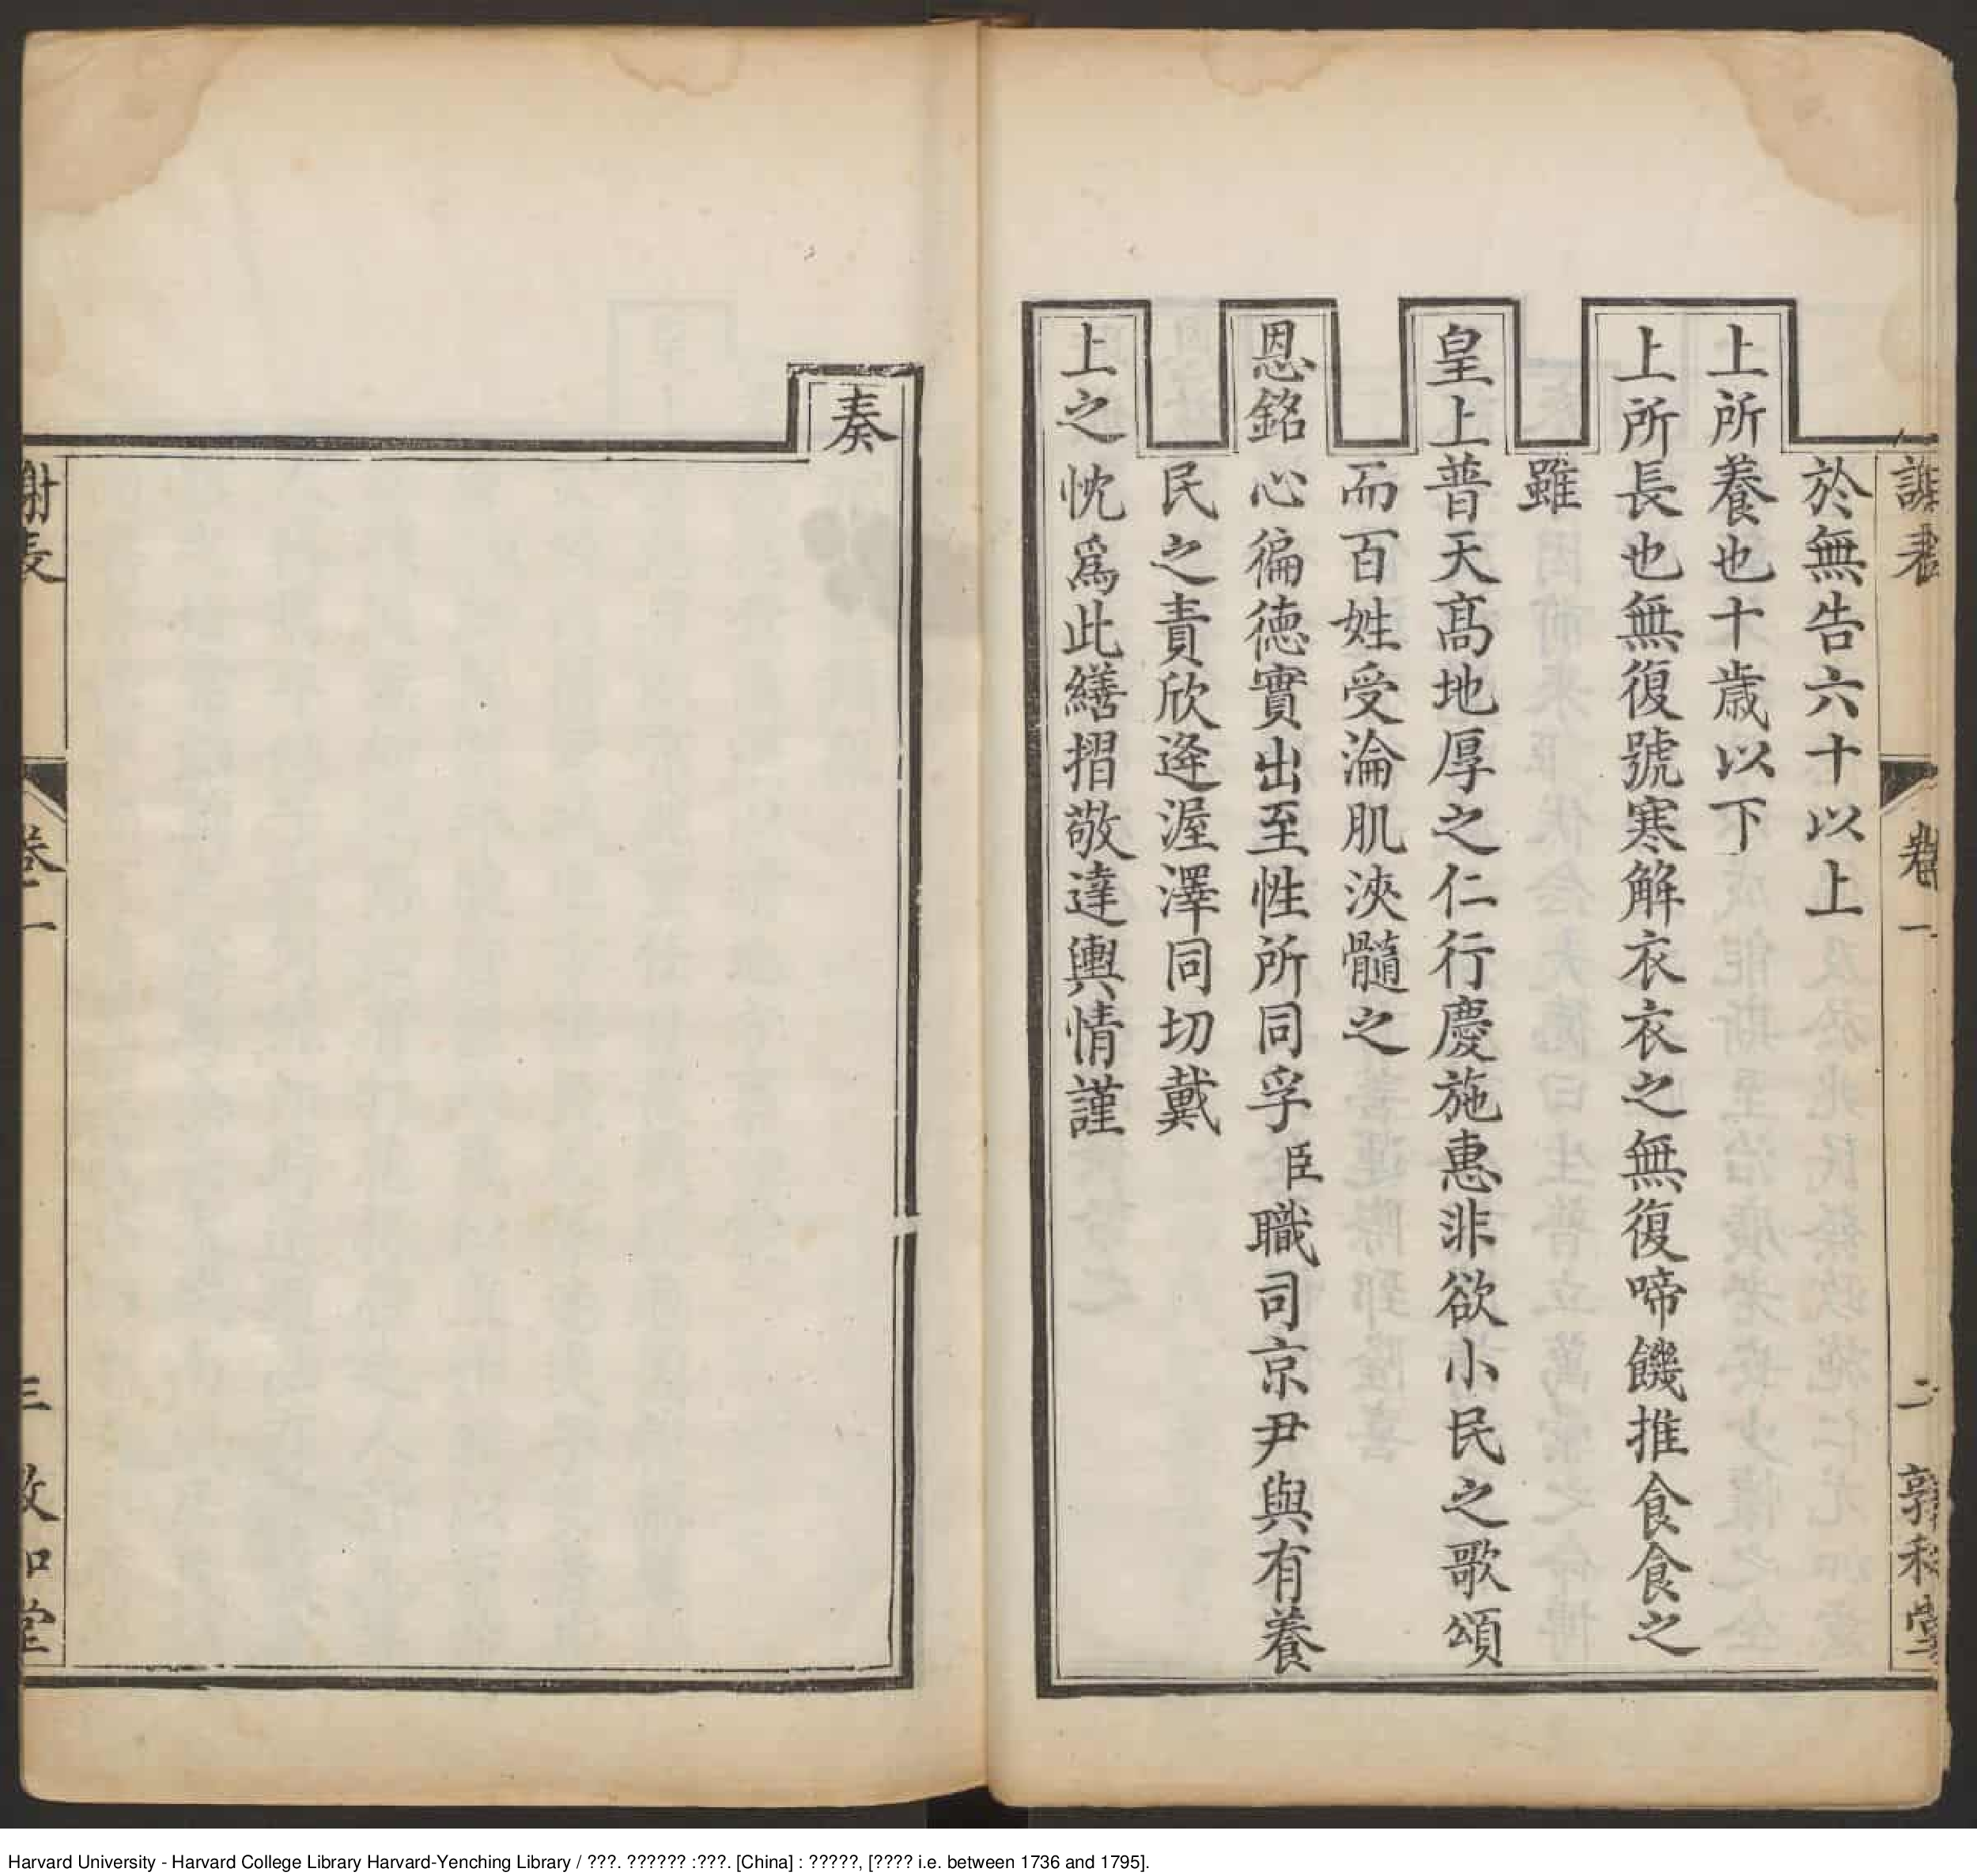 謝表
卷一
二
敦和堂
於無告六十以上
上所養也十歲以下
上所長也無復號寒解衣衣之無復啼饑推食食之
雖
皇上普天高地厚之仁行慶施惠非欲小民之歌頌
而百姓受淪肌浹髓之
恩銘心徧德實出至性所同孚臣職司京尹與有養
民之責欣逢渥澤同切戴
上之忱爲此繕摺敬達輿情謹
奏
謝表
卷一
三
敦和堂
Harvard University - Harvard College Library Harvard-Yenching Library / ???. ?????? :???. [China] : ?????, [???? i.e. between 1736 and 1795].